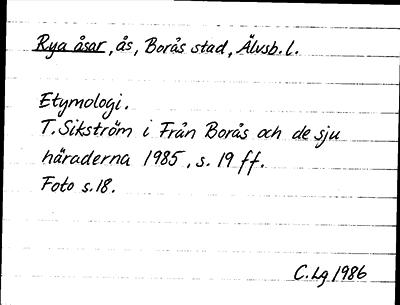 Rya åsar, ås, Borås stad, Älvsb. l.
Etymologi.
T. Sikström i Från Borås och de sju
häraderna 1985, s. 19 ff.
Foto s. 18.
C. Lg 1986